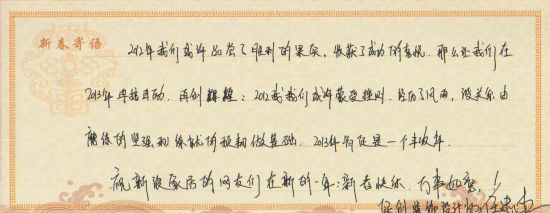 新春寄语
2012年我们或许品尝了胜利的果实,收获了成功的喜悦。那么让我们在
2013年再接再励,再创辉煌;2012我我们或许蒙受挫折,经历了风雨,没关系由
磨练的坚强和练就的预韧做基础,2013年肯定是一个丰收年。
祝新浪家居的网友们在新的一年:新春快乐,万事如意!